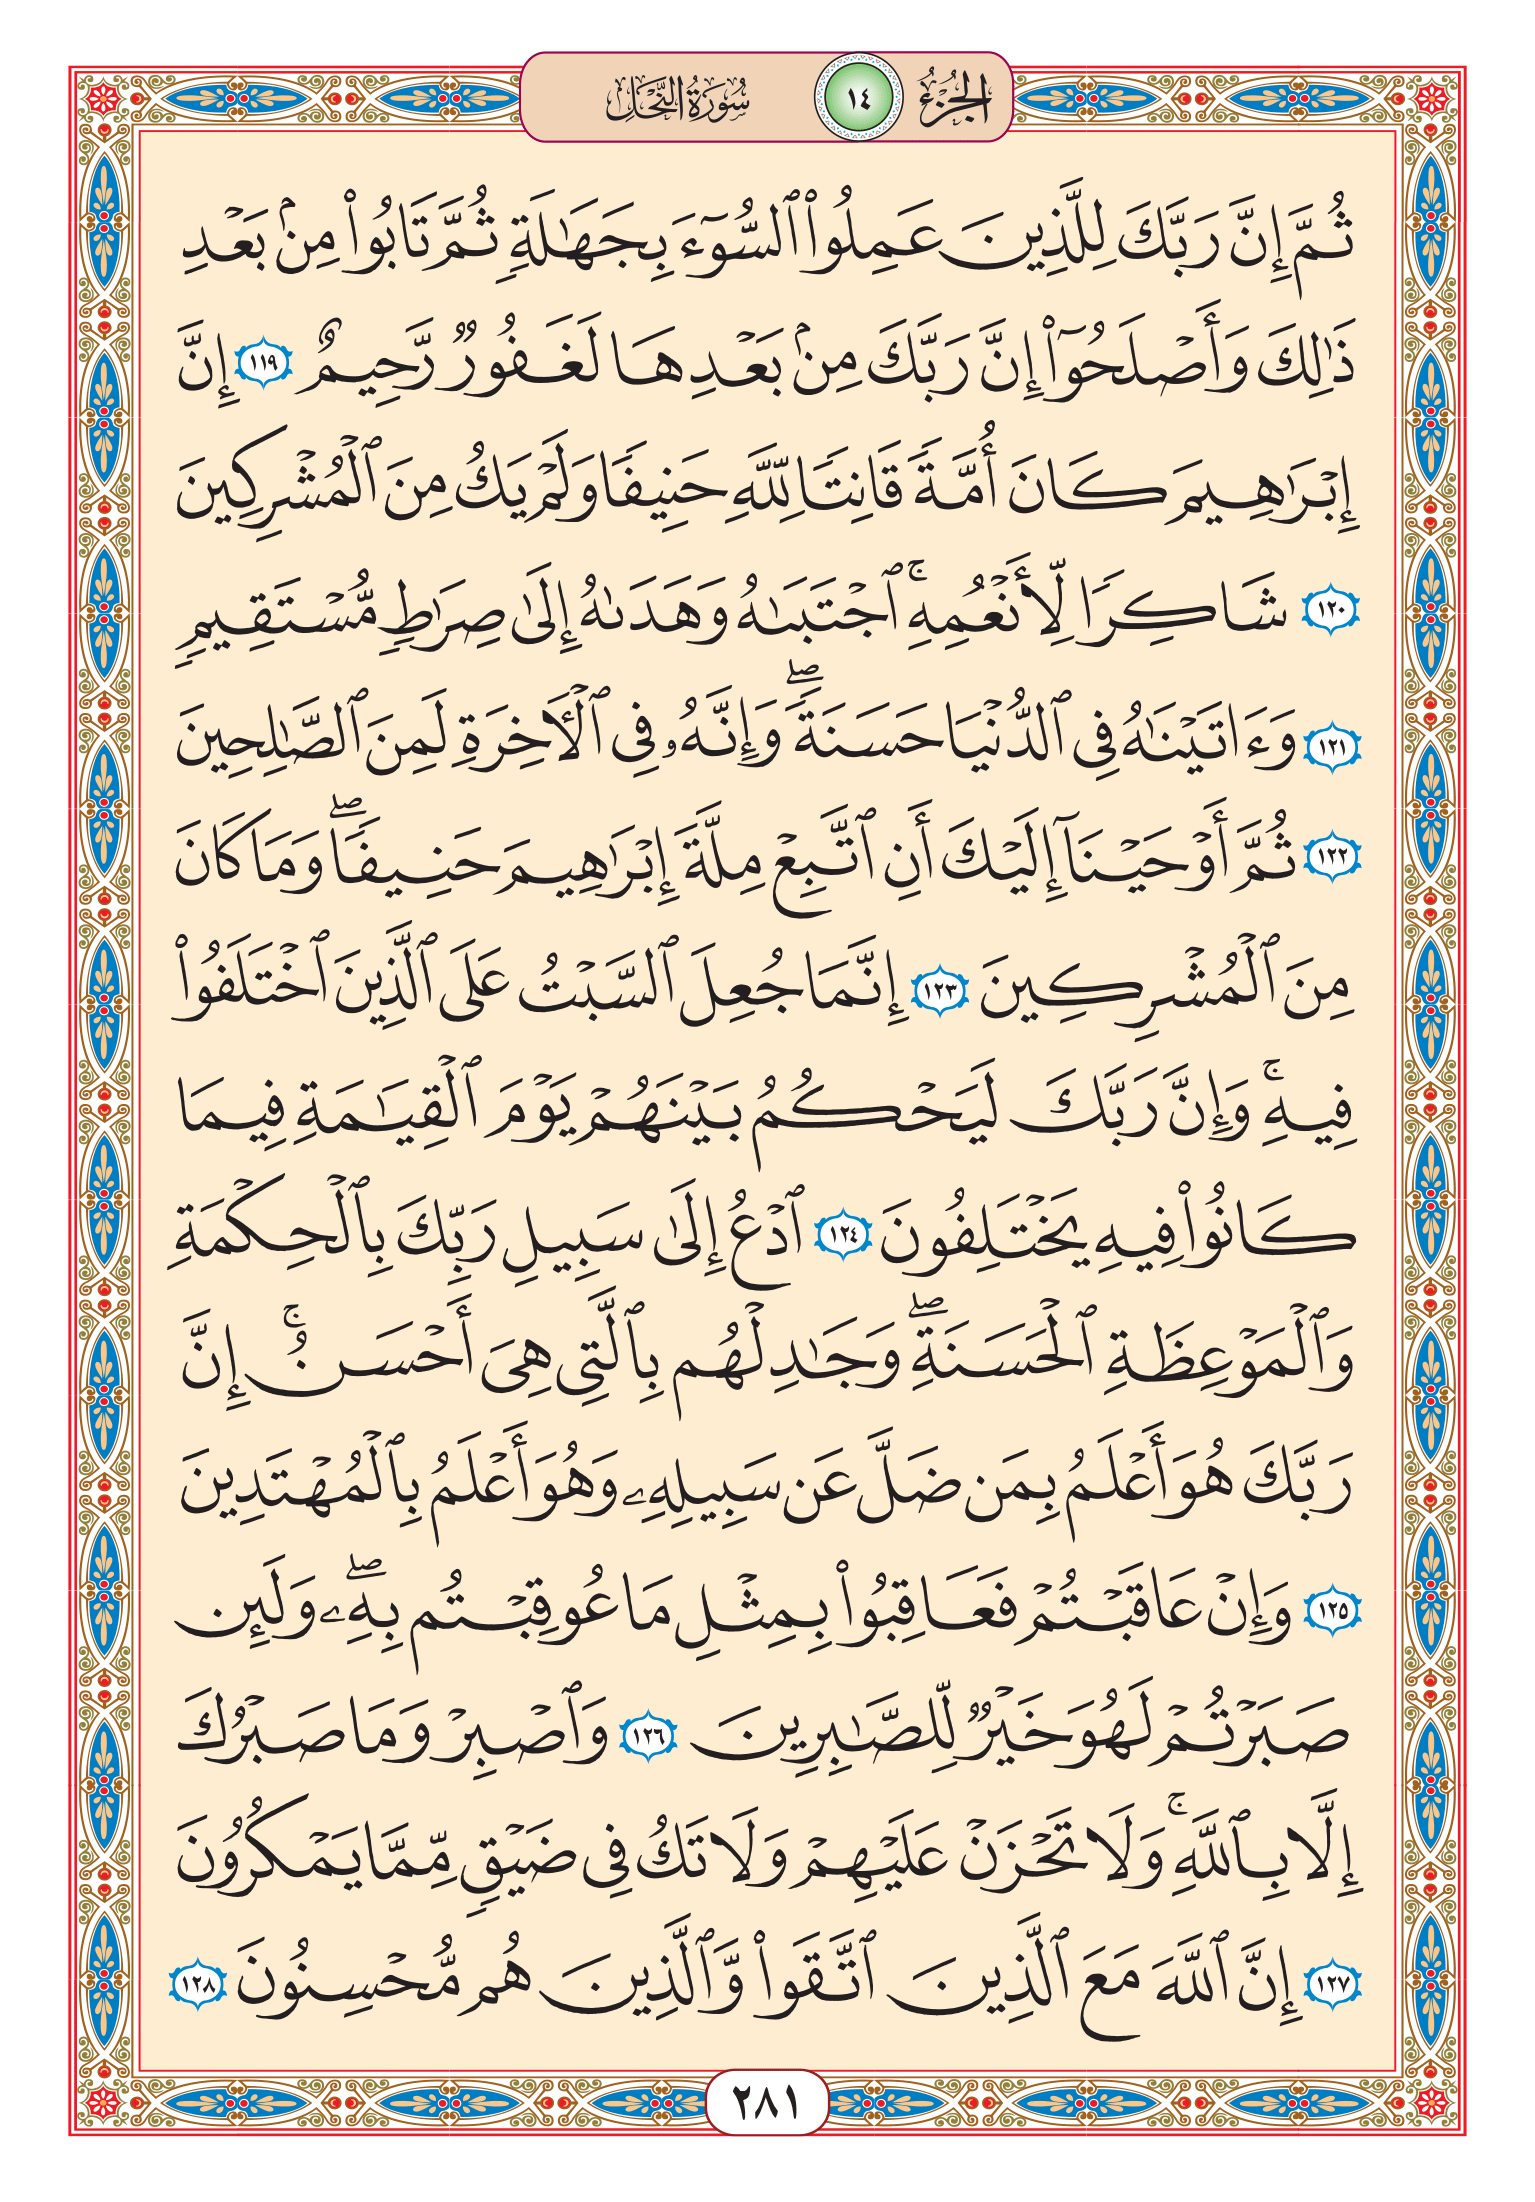 الجزء ١٤ سورة النحل
ثُمَّ إِنَّ رَبَّكَ لِلَّذِينَ عَمِلُوا۟ ٱلسُّوٓءَ بِجَهَٰلَةٍ ثُمَّ تَابُوا۟ مِنۢ بَعْدِ
ذَٰلِكَ وَأَصْلَحُوٓا۟ إِنَّ رَبَّكَ مِنۢ بَعْدِهَا لَغَفُورٌ رَّحِيمٌ ١١٩ إِنَّ
إِبْرَٰهِيمَ كَانَ أُمَّةً قَانِتًا لِّلَّهِ حَنِيفًا وَلَمْ يَكُ مِنَ ٱلْمُشْرِكِينَ
١٢٠ شَاكِرًا لِّأَنْعُمِهِ ۚ ٱجْتَبَىٰهُ وَهَدَىٰهُ إِلَىٰ صِرَٰطٍ مُّسْتَقِيمٍ
١٢١ وَءَاتَيْنَٰهُ فِى ٱلدُّنْيَا حَسَنَةً ۖ وَإِنَّهُۥ فِى ٱلْءَاخِرَةِ لَمِنَ ٱلصَّٰلِحِينَ
١٢٢ ثُمَّ أَوْحَيْنَآ إِلَيْكَ أَنِ ٱتَّبِعْ مِلَّةَ إِبْرَٰهِيمَ حَنِيفًا ۖ وَمَا كَانَ
مِنَ ٱلْمُشْرِكِينَ ١٢٣ إِنَّمَا جُعِلَ ٱلسَّبْتُ عَلَى ٱلَّذِينَ ٱخْتَلَفُوا۟
فِيهِ ۚ وَإِنَّ رَبَّكَ لَيَحْكُمُ بَيْنَهُمْ يَوْمَ ٱلْقِيَٰمَةِ فِيمَا
كَانُوا۟ فِيهِ يَخْتَلِفُونَ ١٢٤ ٱدْعُ إِلَىٰ سَبِيلِ رَبِّكَ بِٱلْحِكْمَةِ
وَٱلْمَوْعِظَةِ ٱلْحَسَنَةِ ۖ وَجَٰدِلْهُم بِٱلَّتِى هِىَ أَحْسَنُ ۚ إِنَّ
رَبَّكَ هُوَ أَعْلَمُ بِمَن ضَلَّ عَن سَبِيلِهِۦ وَهُوَ أَعْلَمُ بِٱلْمُهْتَدِينَ
١٢٥ وَإِنْ عَاقَبْتُمْ فَعَاقِبُوا۟ بِمِثْلِ مَا عُوقِبْتُم بِهِۦ ۖ وَلَئِن
صَبَرْتُمْ لَهُوَ خَيْرٌ لِّلصَّٰبِرِينَ ١٢٦ وَٱصْبِرْ وَمَا صَبْرُكَ
إِلَّا بِٱللَّهِ ۚ وَلَا تَحْزَنْ عَلَيْهِمْ وَلَا تَكُ فِى ضَيْقٍ مِّمَّا يَمْكُرُونَ
١٢٧ إِنَّ ٱللَّهَ مَعَ ٱلَّذِينَ ٱتَّقَوا۟ وَّٱلَّذِينَ هُم مُّحْسِنُونَ ١٢٨
٢٨١